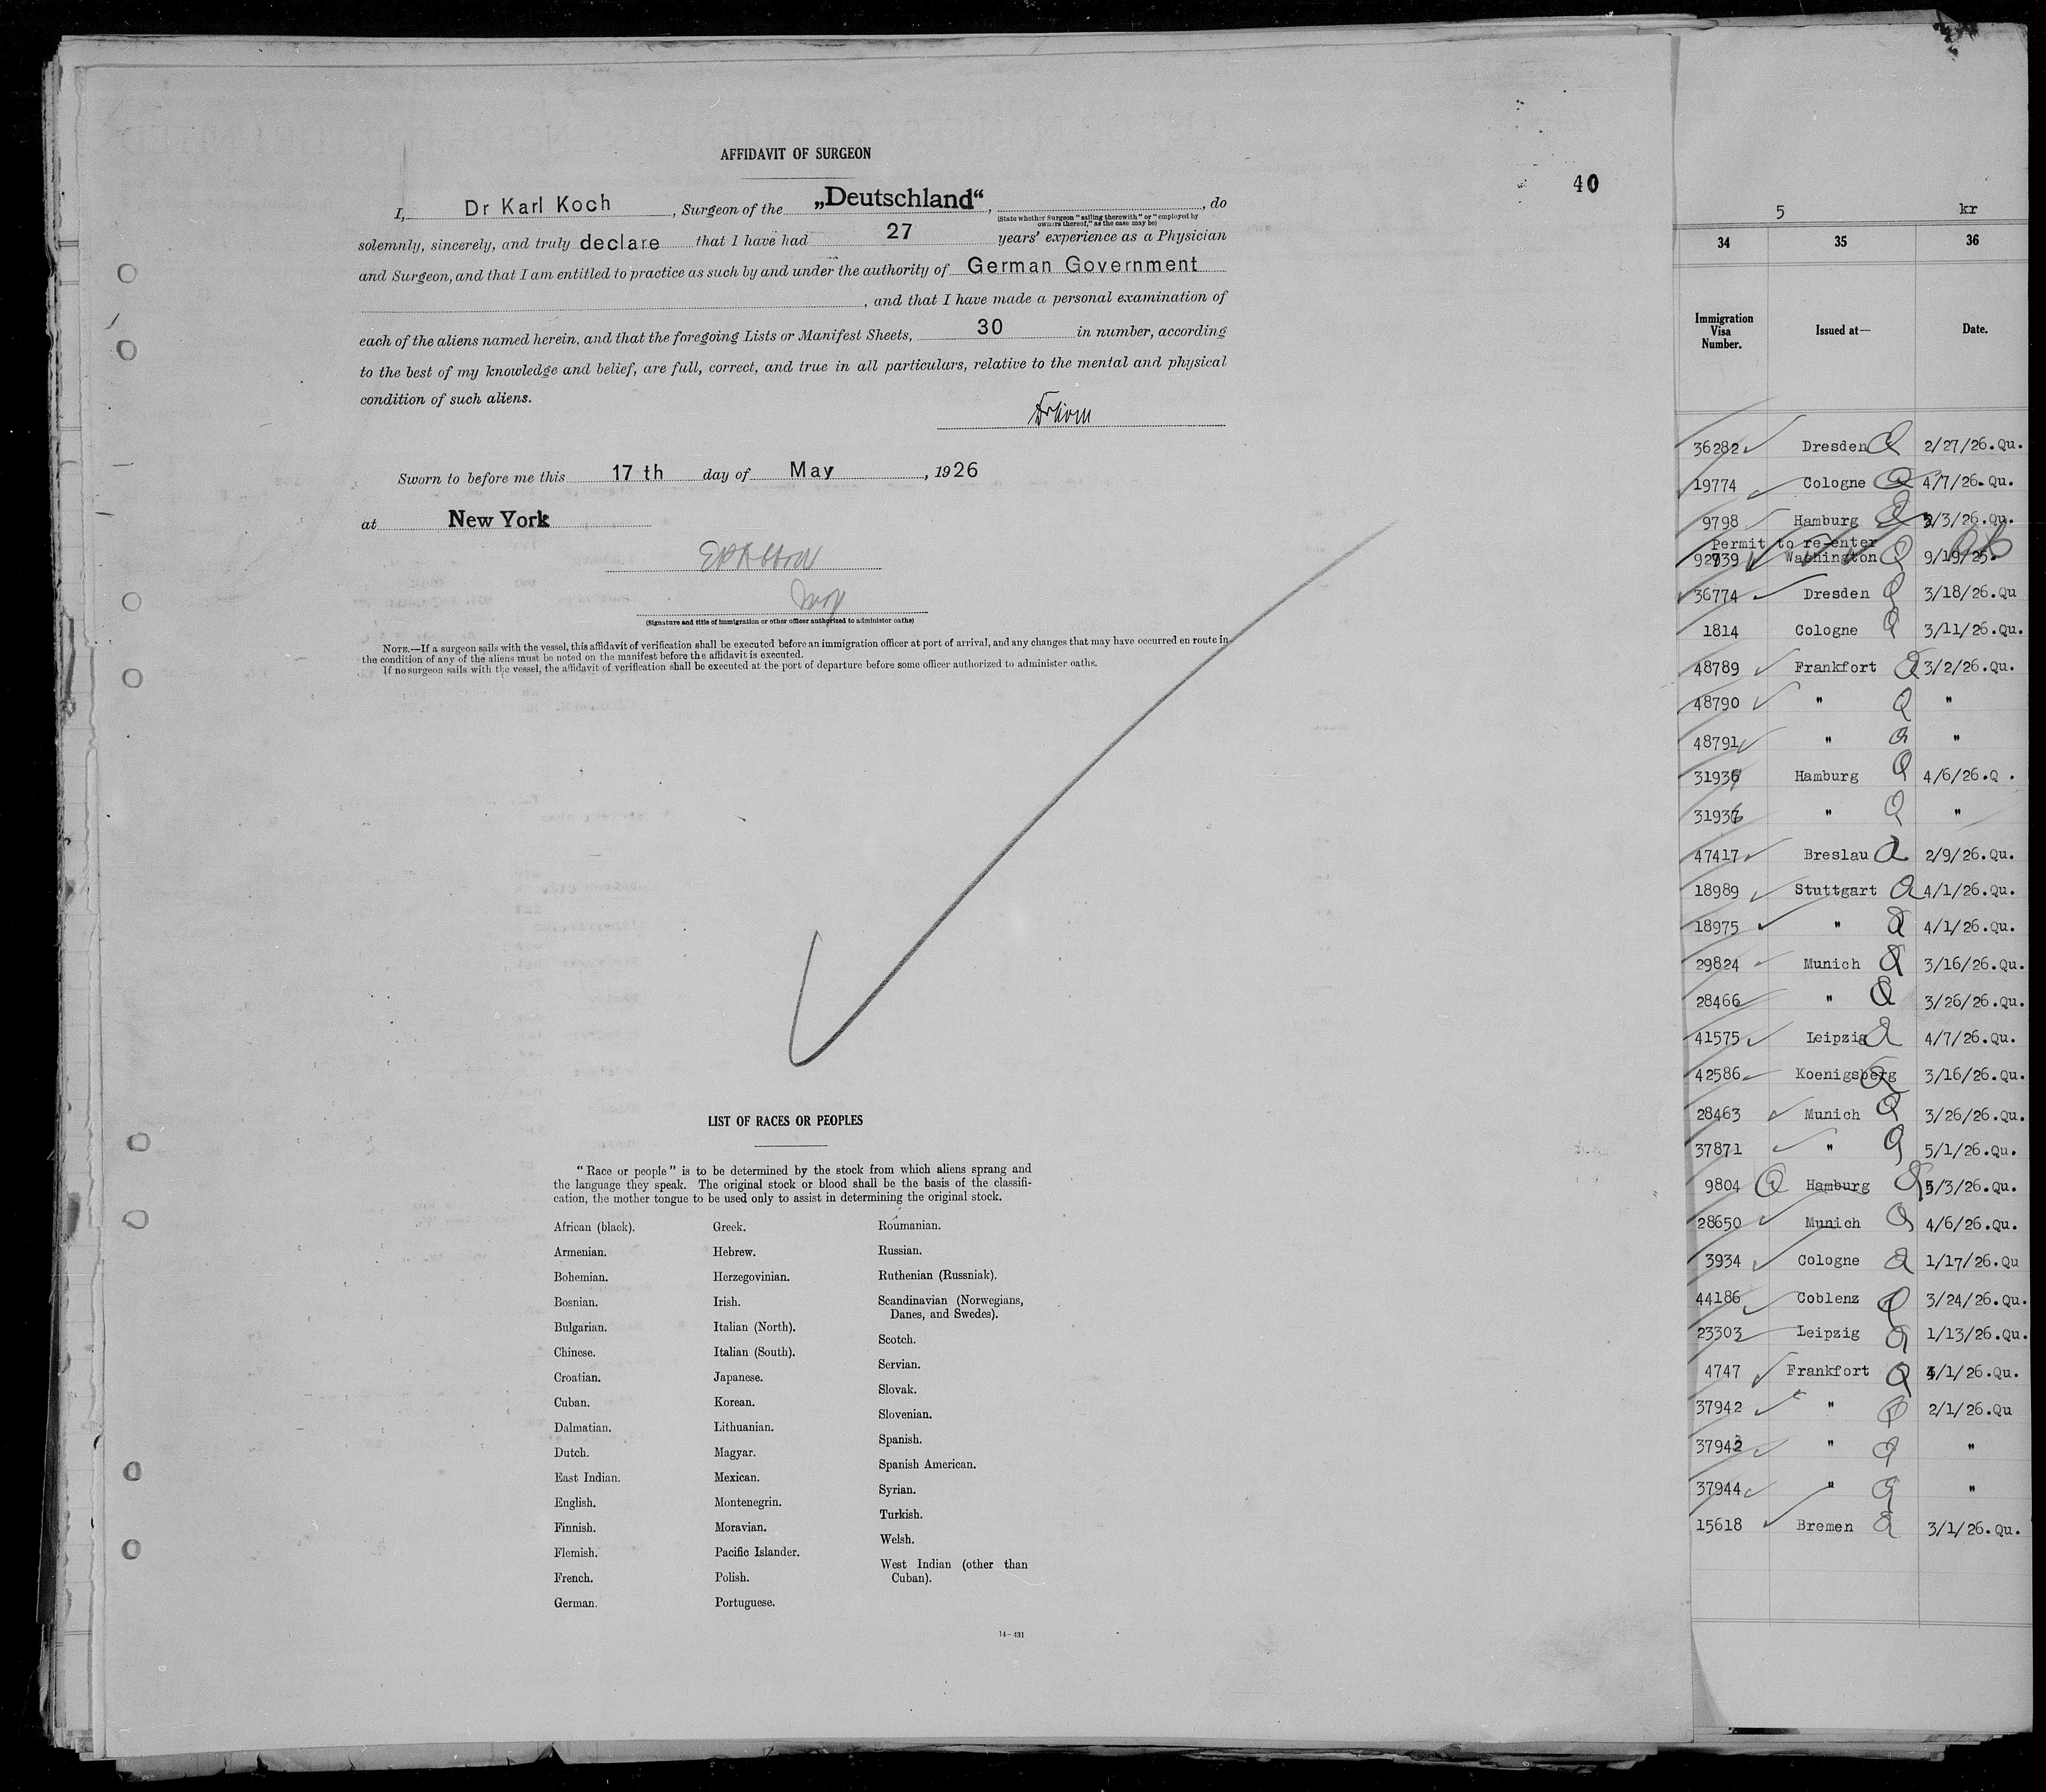 AFFIDAVIT OF SURGEON
40
I, Dr Karl Koch, Surgeon of the „Deutschland“, , do
(State whether Surgeon "sailing therewith" or "employed by
owners thereof," as the case may be)
solemnly, sincerely, and truly declare that I have had 27 years' experience as a Physician
and Surgeon, and that I am entitled to practice as such by and under the authority of German Government
, and that I have made a personal examination of
each of the aliens named herein, and that the foregoing Lists or Manifest Sheets, 30 in number, according
to the best of my knowledge and belief, are full, correct, and true in all particulars, relative to the mental and physical
condition of such aliens.
Sworn to before me this 17 th day of May, 1926
at New York
(Signature and title of immigration or other officer authorized to administer oaths)
NOTE.—If a surgeon sails with the vessel, this affidavit of verification shall be executed before an immigration officer at port of arrival, and any changes that may have occurred en route in
the condition of any of the aliens must be noted on the manifest before the affidavit is executed.
If no surgeon sails with the vessel, the affidavit of verification shall be executed at the port of departure before some officer authorized to administer oaths.
LIST OF RACES OR PEOPLES
"Race or people" is to be determined by the stock from which aliens sprang and
the language they speak. The original stock or blood shall be the basis of the classifi-
cation, the mother tongue to be used only to assist in determining the original stock.
African (black).
Armenian.
Bohemian.
Bosnian.
Bulgarian.
Chinese.
Croatian.
Cuban.
Dalmatian.
Dutch.
East Indian.
English.
Finnish.
Flemish.
French.
German.
Greek.
Hebrew.
Herzegovinian.
Irish.
Italian (North).
Italian (South).
Japanese.
Korean.
Lithuanian.
Magyar.
Mexican.
Montenegrin.
Moravian.
Pacific Islander.
Polish.
Portuguese.
Roumanian.
Russian.
Ruthenian (Russniak).
Scandinavian (Norwegians,
Danes, and Swedes).
Scotch.
Servian.
Slovak.
Slovenian.
Spanish.
Spanish American.
Syrian.
Turkish.
Welsh.
West Indian (other than
Cuban).
14—431
5 kr
34 35 36
Immigration
Visa
Number.
Issued at—
Date.
36282 Dresden Q 2/27/26.Qu.
19774 Cologne Q 4/7/26.Qu.
9798 Hamburg Q /3/26.Qu.
Permit to re-enter
Washington Q 9/19/25.
36774 Dresden Q 3/18/26.Qu
1814 Cologne Q 3/11/26.Qu.
48789 Frankfort Q 3/2/26.Qu.
48790 " Q "
48791 " Q "
Hamburg Q 4/6/26.Q .
" Q "
47417 Breslau Q 2/9/26.Qu.
18989 Stuttgart Q 4/1/26.Qu.
18975 " Q 4/1/26.Qu.
29824 Munich Q 3/16/26.Qu.
28466 " Q 3/26/26.Qu.
41575 Leipzig Q 4/7/26.Qu.
42586 Koenigsberg Q 3/16/26.Qu.
28463 Munich Q 3/26/26.Qu.
37871 " Q 5/1/26.Qu.
9804 Q Hamburg Q 5/3/26.Qu.
28650 Munich Q 4/6/26.Qu.
3934 Cologne Q 1/17/26.Qu
44186 Coblenz Q 3/24/26.Qu.
23303 Leipzig Q 1/13/26.Qu.
4747 Frankfort Q /1/26.Qu.
37942 " Q 2/1/26.Qu
37943 " Q "
37944 " Q "
15618 Bremen Q 3/1/26.Qu.